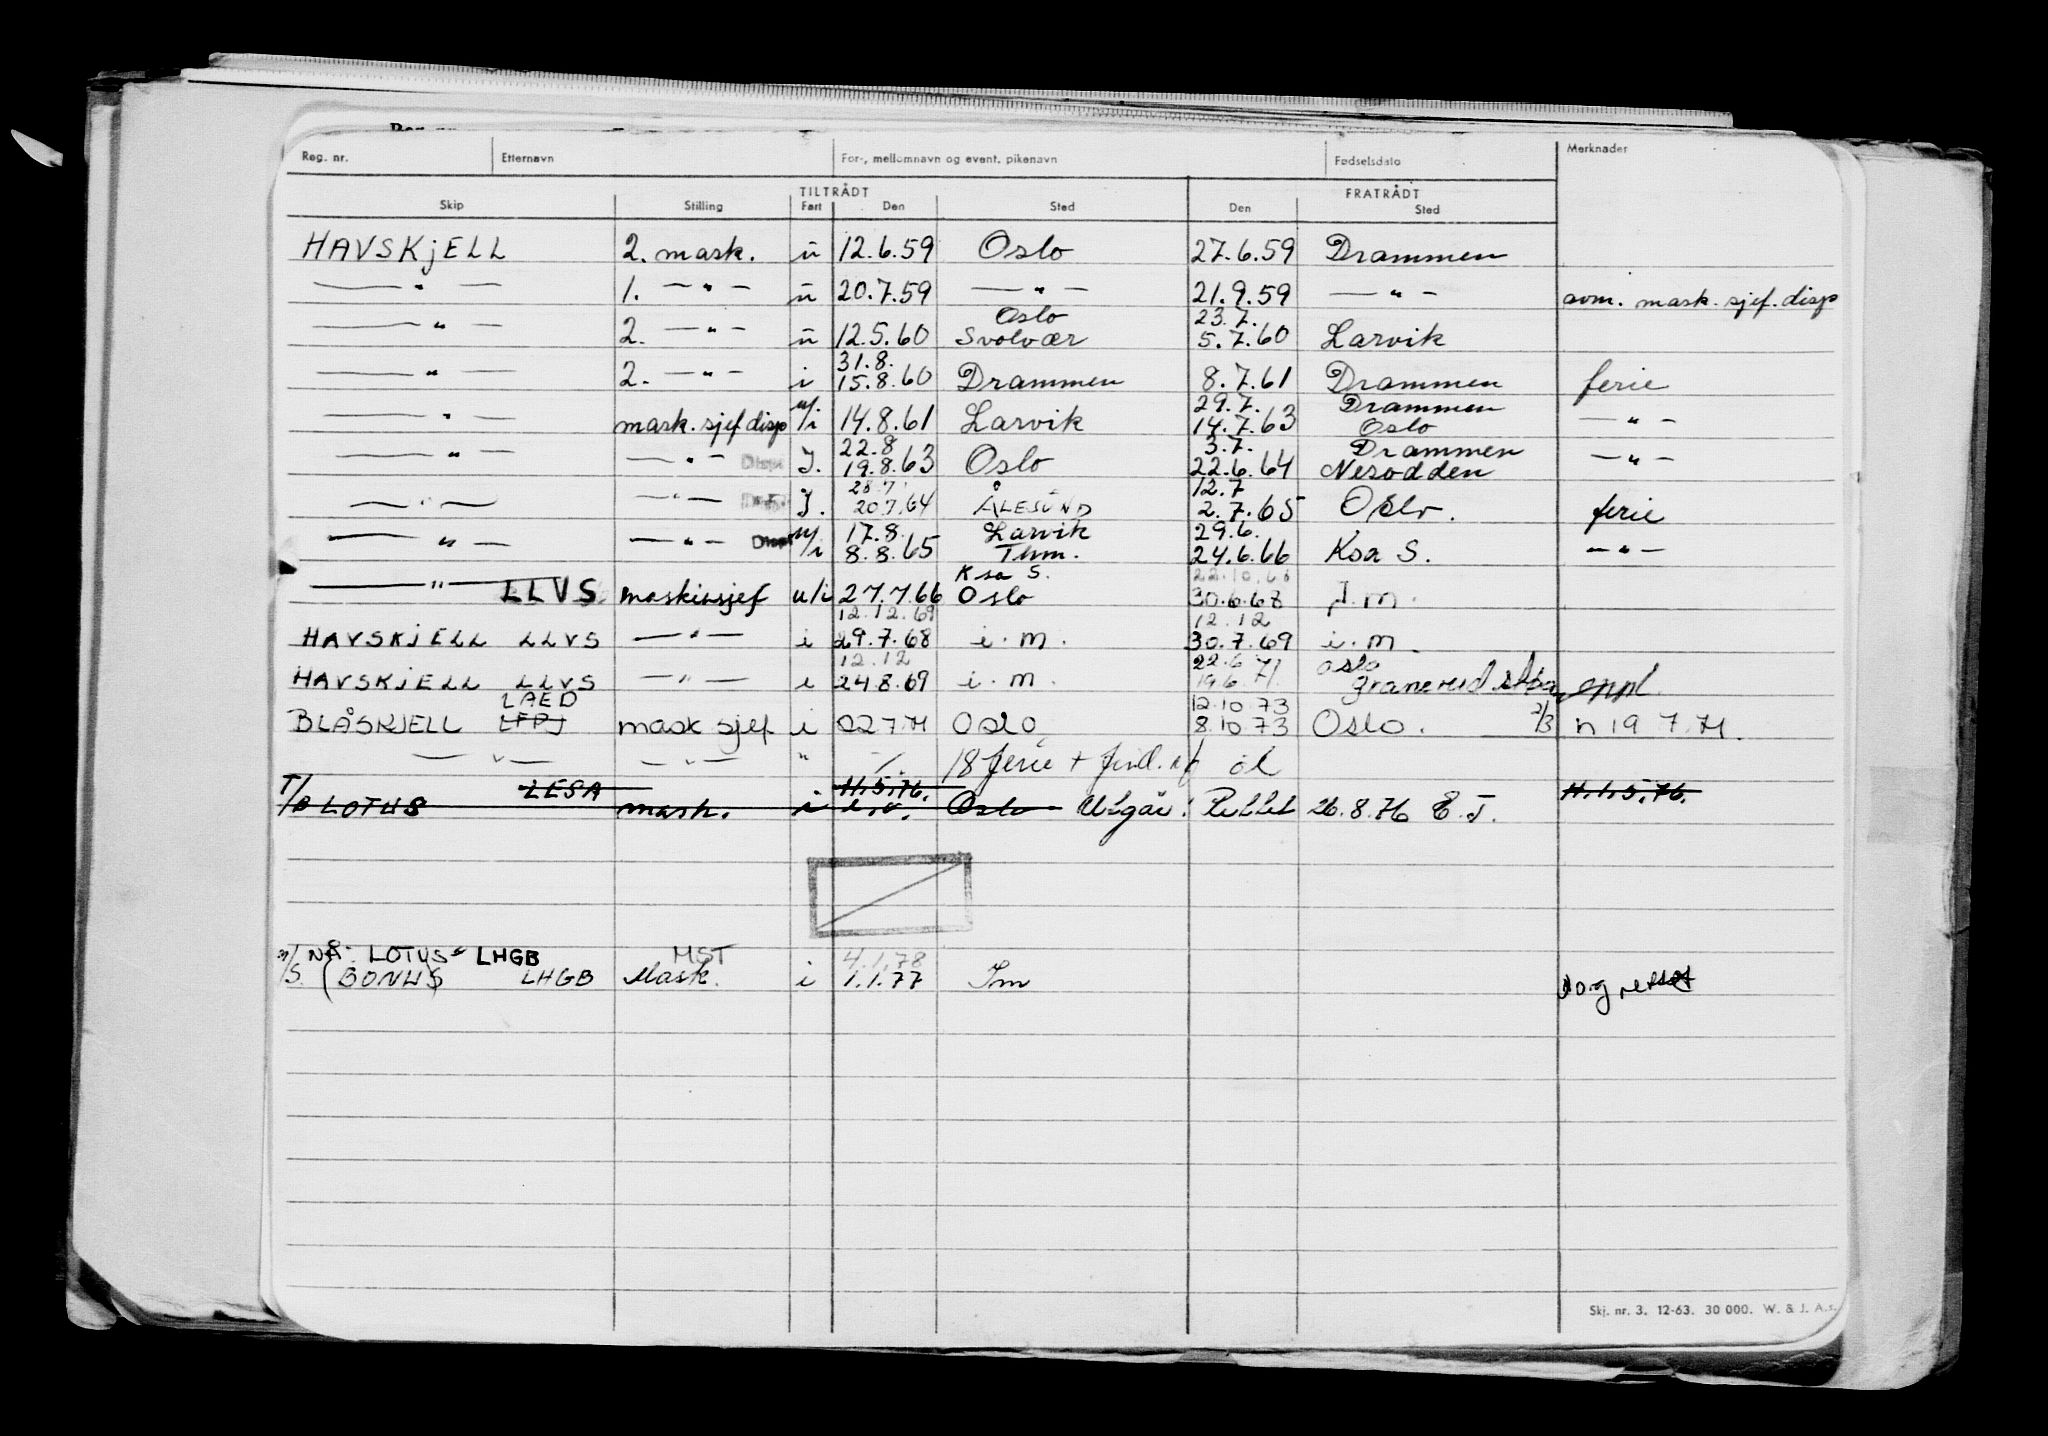 Reg. nr. Etternavn For-, mellomnavn og event. pikenavn Fødselsdato Merknader
TILTRÅDT FRATRÅDT
Skip Stilling Fart Den Sted Den Sted
HAVSKjELL 2. mask. u 12.6.59 Oslo 27.6.59 Drammen
—— " — 1. — " — u 20.7.59 — " — 21.9.59 — " — avm. mask. sjef. disp
Oslo 23.7.
—— " — 2. — " — u 12.5.60 Svolvær 5.7.60 Larvik
31.8.
—— " — 2. — " — i 15.8.60 Drammen 8.7.61 Drammen ferie
29.7. Drammen
—— " — mask. sjef disp u/i 14.8.61 Larvik 14.7.63 Oslo — " —
22.8 3.7. Drammen
—— " — — " — Disp I. 19.8.63 Oslo 22.6.64 Nesodden — " —
28.7 12.7
— " — — " — Disp I. 20.7.64 ÅLESUND 2.7.65 Oslo. ferie
17.8. Larvik 29.6.
—— " — — " — Disp u/i 8.8.65 Thm. 24.6.66 Ksa S. — " —
Ksa S. 22.10.66
—— " — LLVS maskinsjef u/i 27.7.66 Oslo 30.6.68 I.m.
12.12.69 12.12
HAVSKjELL LLVS — " — i 29.7.68 i.m. 30.7.69 i.m.
12.12 22.6 oslo
HAVSKjELL LLVS — " — i 24.8.69 i.m. 19.6.71.
LAED 12.10.73
BLÅSKJELL LFPJ mask sjef i 02.7.71 OSLO 8.10.73 Oslo. 2/3 n 19.7.71.
— " — — " — " 18 ferie +
T/ LESA 11.5.76. 11.1.5.76.
B LOTUS mask. i Oslo Utgår. 26.8.76 E.J.
m/ NÅ: LOTUS" LHGB MST 4.1.78
S. (BONUS) LHGB Mask. i 1.1.77 Im
Skj. nr. 3. 12-63. 30 000. W. & J. A.s.